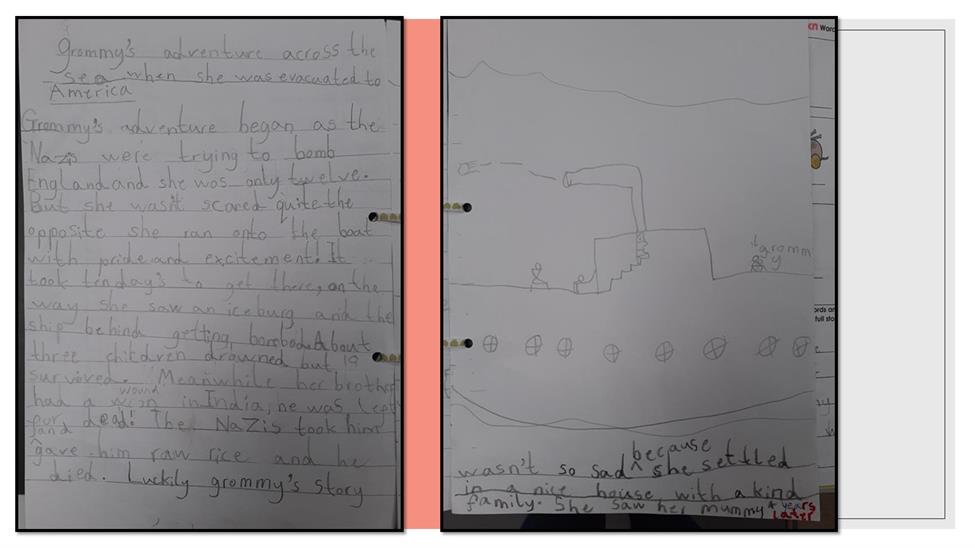 grommy's adventure across the
sea when she was evacuated to
America
Grommy's adventure began as the
Nazis were trying to bomb
England and she was only twelve.
But she wasn't scared quite the
opposite she ran onto the boat
with pride and excitement! It
took ten day's to get there, on the
way she saw an iceburg and the
ship behind getting bombed. About
three children drowned but
survived. Meanwhile her brother
had a wound in India, he was left
for dead! The Nazis took him
and
gave him raw rice and he
died. Luckily grommy's story
Word
gromm
y
ords an
full sto
because
wasn't so sad ^ she settled
in a nice house, with a kind
family. She saw her mummy 4 years
Later